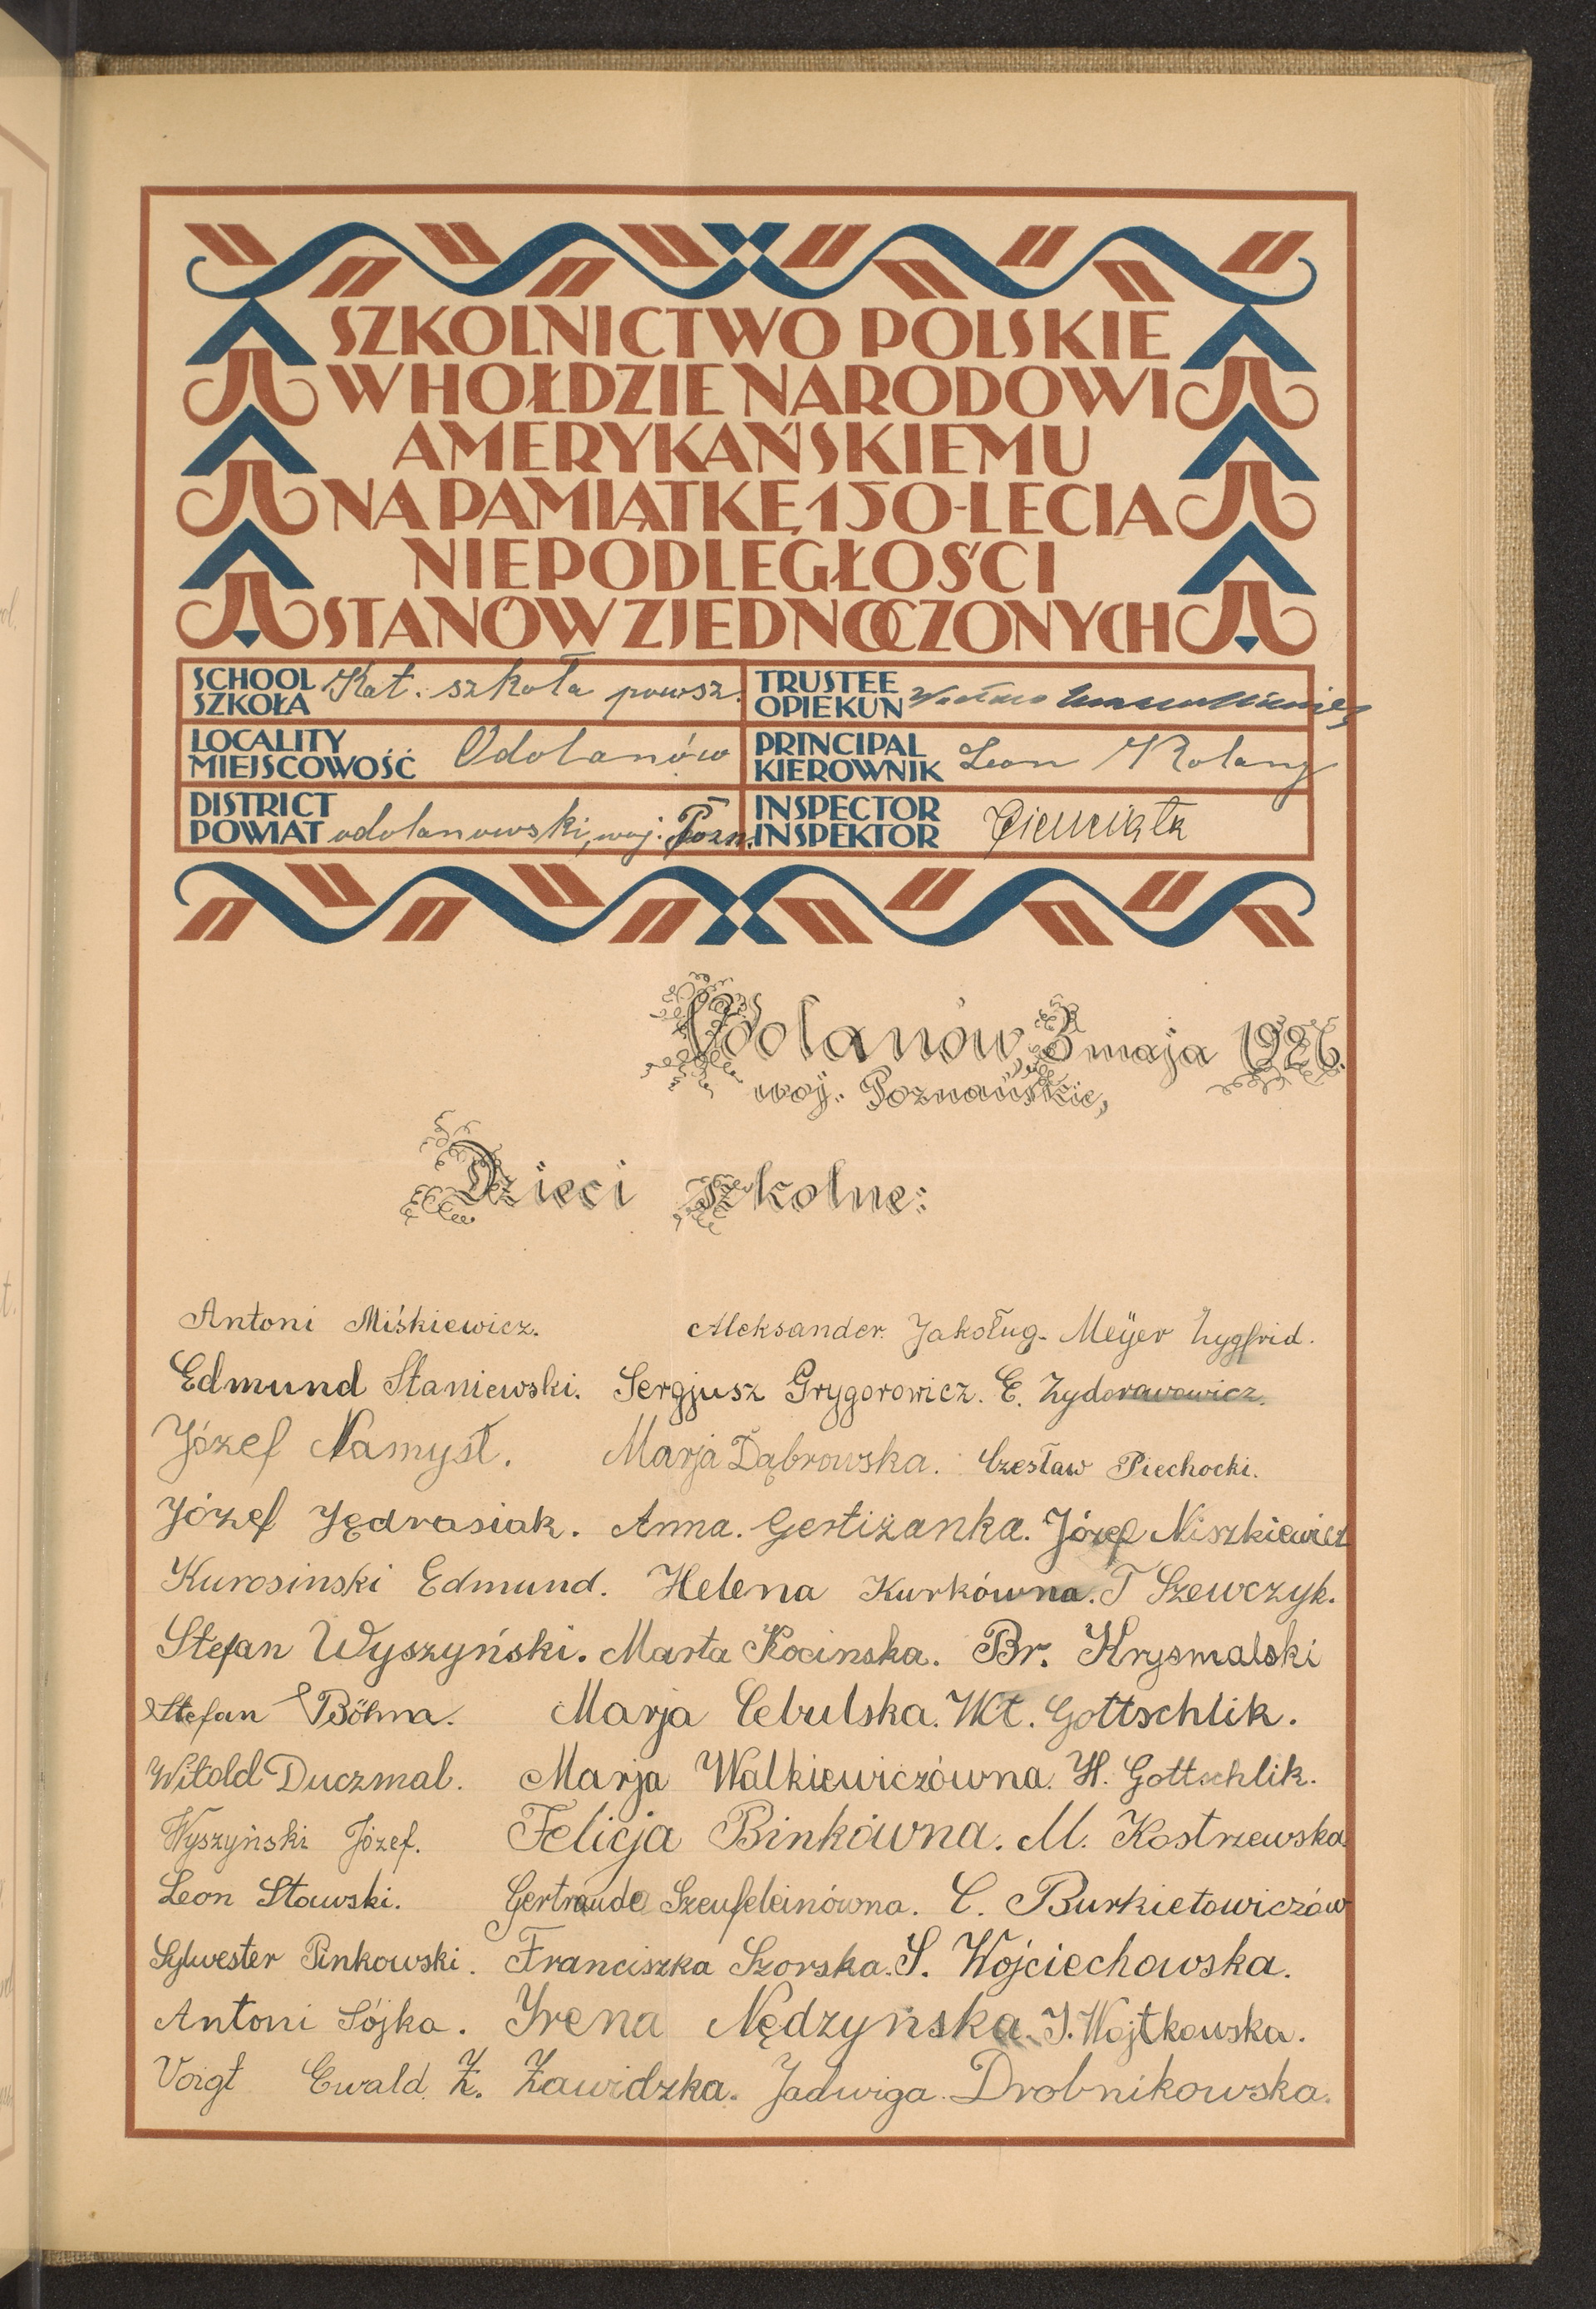 SZKOLNICTWO POLSKIE
W HOŁDZIE NARODOWI
AMERYKAŃSKIEMU
NA PAMIĄTKĘ 150-LECIA
NIEPODLEGŁOŚCI
STANÓW ZJEDNOCZONYCH
SCHOOL
SZKOŁA Kat. szkoła powsz.
TRUSTEE
OPIEKUN
LOCALITY
MIEJSCOWOŚĆ Odolanów
PRINCIPAL
KIEROWNIK Leon Rolany
DISTRICT
POWIAT odolanowski, woj. Pozn.
INSPECTOR
INSPEKTOR Cienciała
Odolanów, 3 maja 1926.
woj. Poznańskie,
Dzieci szkolne:
Antoni Miśkiewicz. Aleksander Jakoług. Meÿer Zygfrid.
Edmund Staniewski. Sergjusz Grygorowicz. E.
Józef Namysł. Marja Dąbrowska. Czesław Piechocki.
Józef Jędrasiak. Anna. Gertiżanka. Józef Niszkiewicz
Kurosinski Edmund. Helena Kurkówna. T Szewczyk.
Stefan Wyszyński. Marta Kocinska. Br. Krysmalski
Stefan Böhma. Marja Cebulska. Wł. Gottschlik.
Witold Duczmal. Marja Walkiewiczówna. H. Gottschlik.
Wyszyński Józef. Felicja Binkówna. M. Kostrzewska
Leon Stawski. Gertrauda Szeufeleinówna. C. Burkietowiczów
Sylwester Pinkowski. Franciszka Szorska. S. Wojciechowska.
Antoni Sójka. Yrena Nędzyńska. J. Wojtkowska.
Voigt Ewald Z. Zawidzka. Jadwiga Drobnikowska.